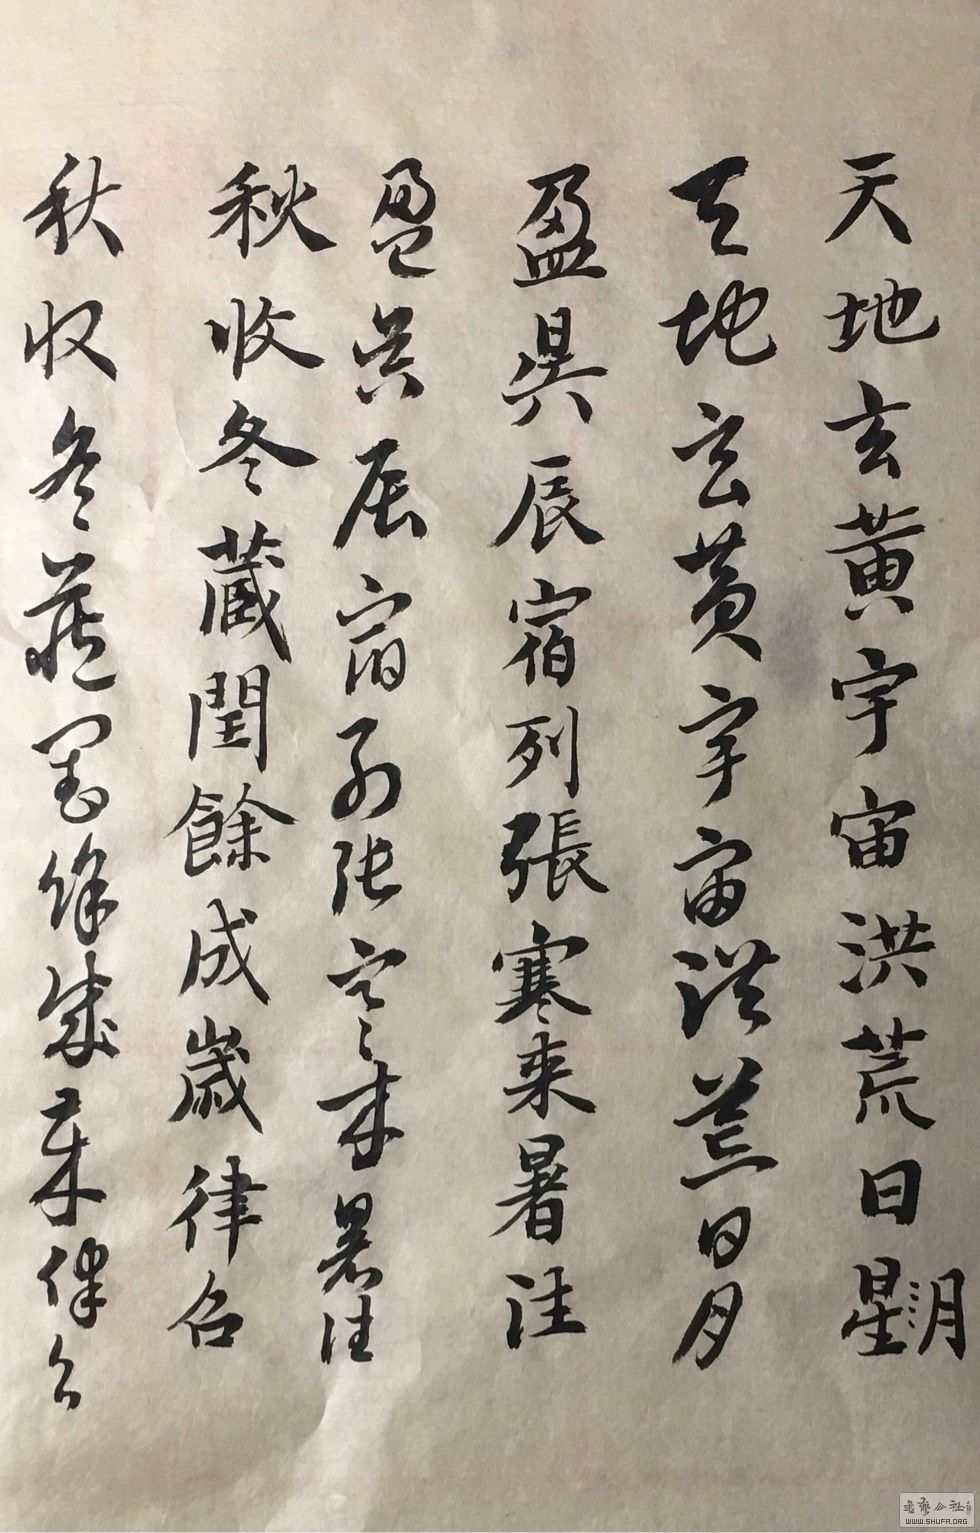 天地玄黃宇宙洪荒日星月
天地玄黄宇宙洪荒日月
盈昃辰宿列張寒来暑往
盈昃辰宿列张寒来暑往
秋收冬蔵閏餘成歲律召
秋收冬藏閏餘成歲律召
書藝公社
WWW.SHUFA.ORG